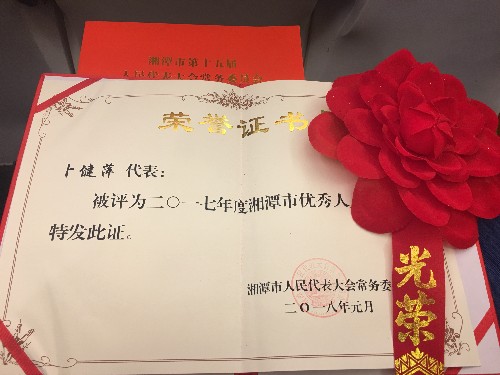 湘潭市第十五届
人民代表大会常务委员会
荣誉证书
卜健萍 代表：
被评为二〇一七年度湘潭市优秀人
特发此证。
湘潭市人民代表大会常务委
二〇一八年元月
光荣